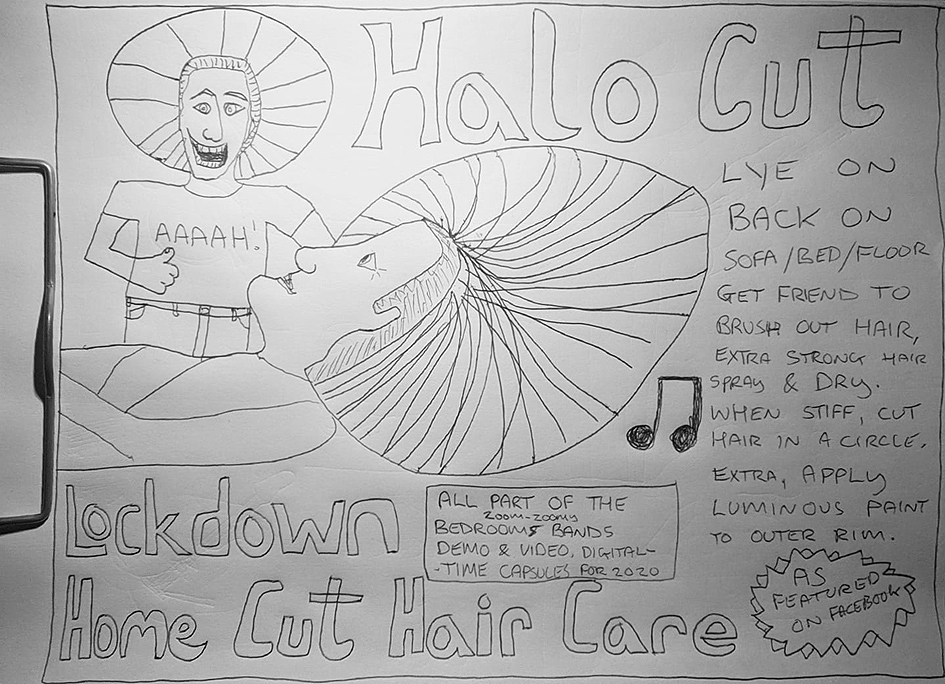 Halo Cut
AAAAH!
LYE ON
BACK ON
SOFA/BED/FLOOR
GET FRIEND TO
BRUSH OUT HAIR,
EXTRA STRONG HAIR
SPRAY & DRY.
WHEN STIFF, CUT
HAIR IN A CIRCLE.
EXTRA, APPLY
LUMINOUS PAINT
TO OUTER RIM.
Lockdown
Home Cut Hair Care
ALL PART OF THE
ZOOM-ZOOMY
BEDROOMS BANDS
DEMO & VIDEO, DIGITAL-
-TIME CAPSULES FOR 2020
AS
FEATURED
ON FACEBOOK